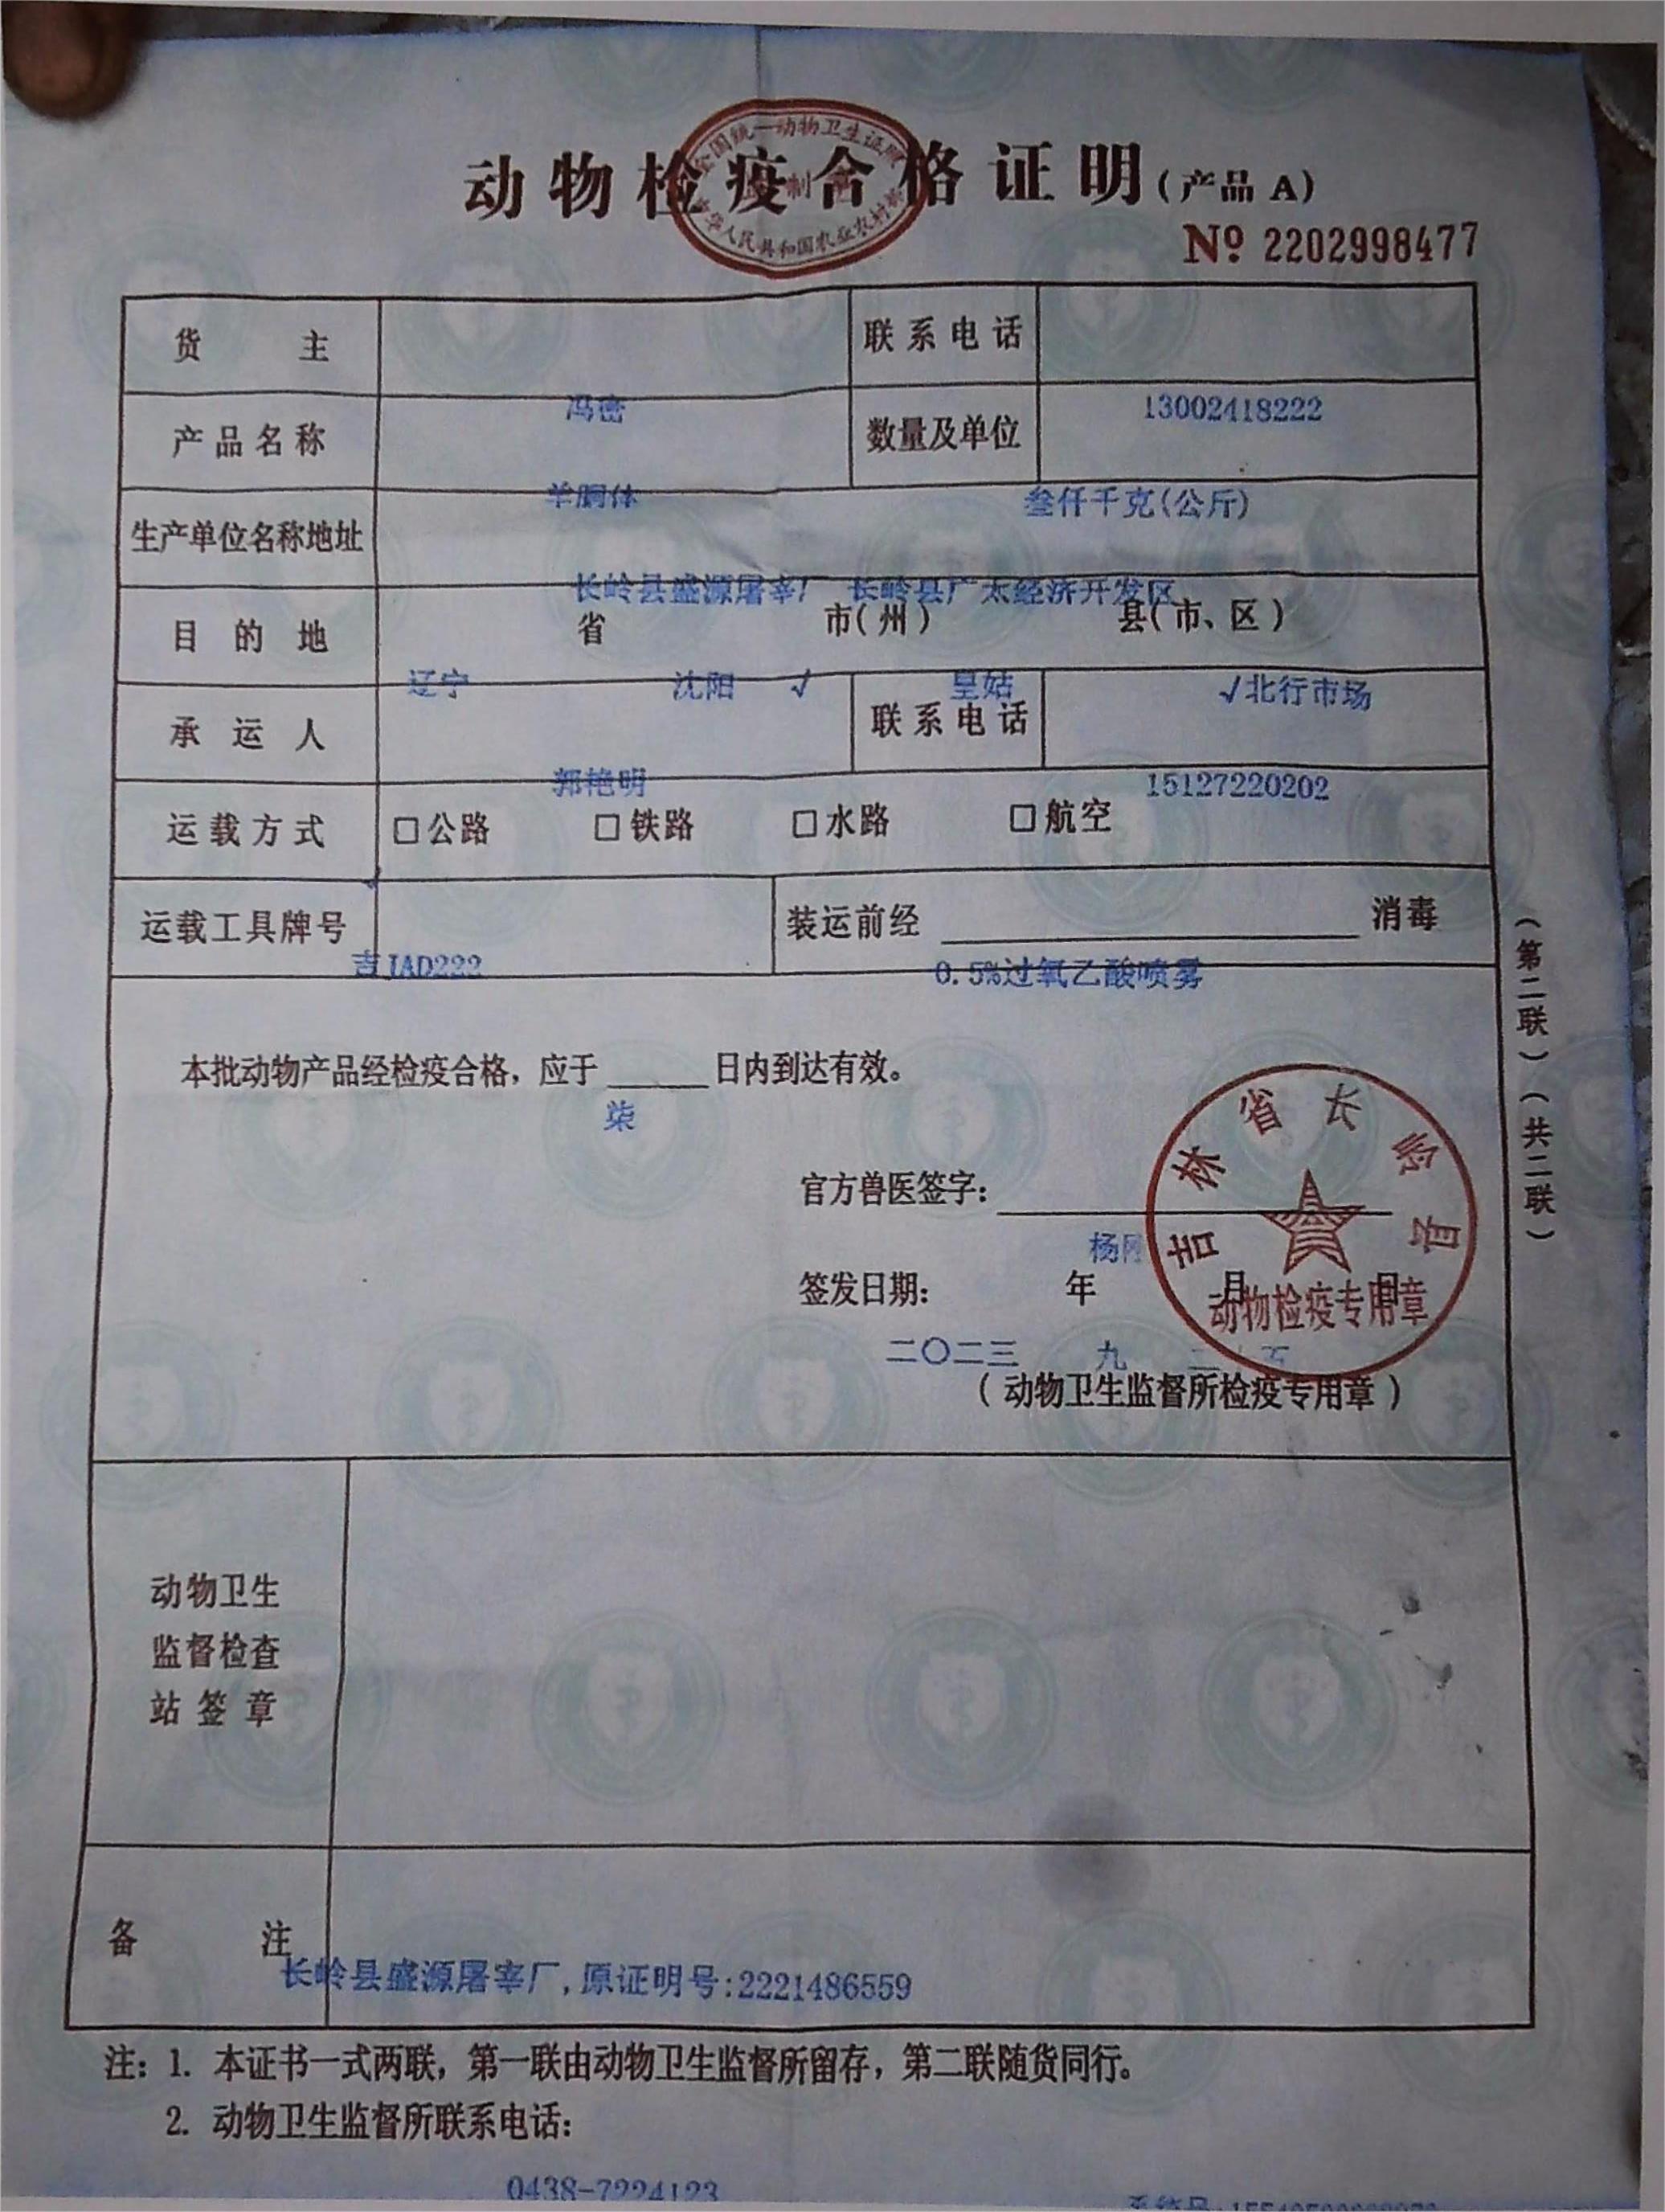 动物检疫合格证明(产品 A)
全国统一动物卫生证照
监制章
中华人民共和国农业农村部
№ 2202998477
货 主 联系电话
冯密 13002418222
产品名称 数量及单位
羊胴体 叁仟千克(公斤)
生产单位名称地址
长岭县盛源屠宰厂 长岭县广太经济开发区
目的地 省 市(州) 县(市、区)
辽宁 沈阳 √ 皇姑 √北行市场
承运人 联系电话
郭艳明 15127220202
运载方式 □公路 □铁路 □水路 □航空
运载工具牌号 装运前经 消毒
吉JAD222 0.5%过氧乙酸喷雾
本批动物产品经检疫合格，应于 日内到达有效。
柒
官方兽医签字：
杨刚
签发日期： 年 月 日
二〇二三 九 二十五
吉林省长岭县
动物检疫专用章
(动物卫生监督所检疫专用章)
(第二联)(共二联)
动物卫生
监督检查
站签章
备 注
长岭县盛源屠宰厂,原证明号:2221486559
注：1. 本证书一式两联，第一联由动物卫生监督所留存，第二联随货同行。
2. 动物卫生监督所联系电话：
0438-7224123